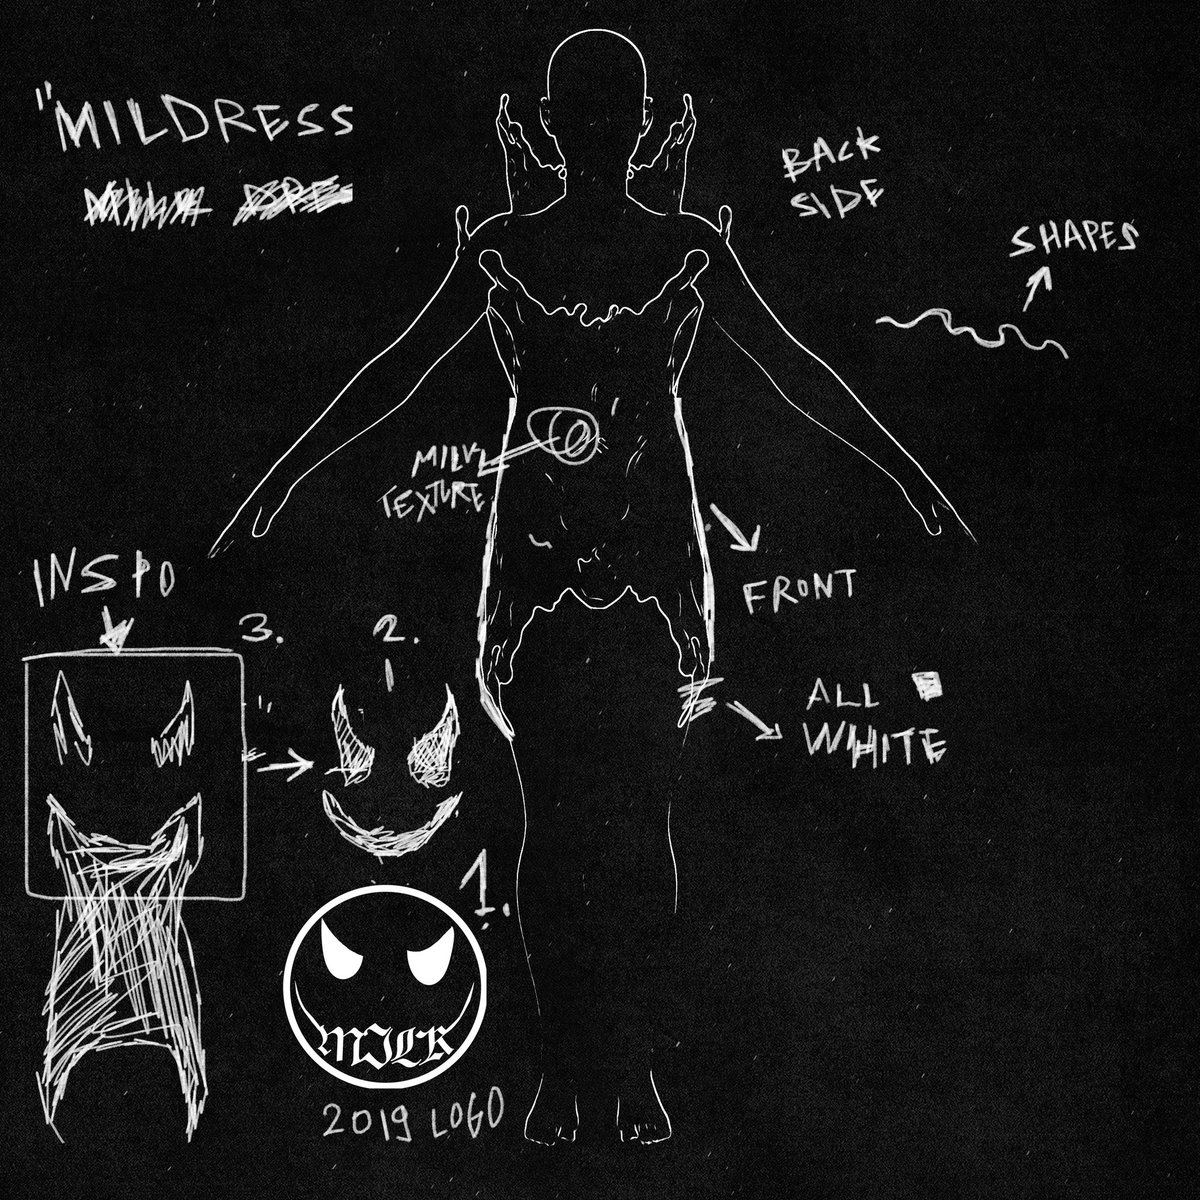 "MILDRESS
BACK
SIDE
SHAPES
MILK
TEXTURE
FRONT
INSPO
3.
2.
ALL
WHITE
1.
MILK
2019 LOGO